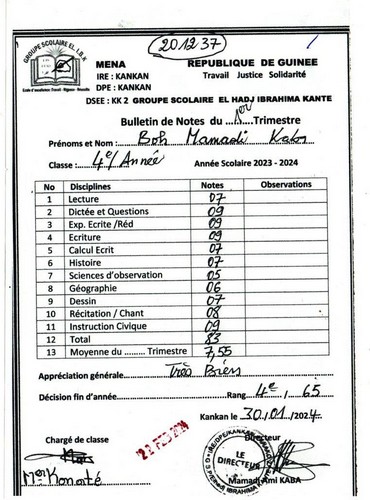 201237
GROUPE SCOLAIRE EL. I.B.K
MENA
REPUBLIQUE DE GUINEE
IRE : KANKAN
Travail Justice Solidarité
DPE : KANKAN
DSEE : KK 2 GROUPE SCOLAIRE EL HADJ IBRAHIMA KANTE
Bulletin de Notes du 1er Trimestre
Prénoms et Nom : Boh Mamadi Kaba
Classe : 4e/Année
Année Scolaire 2023 - 2024
No Disciplines Notes Observations
1 Lecture 07
2 Dictée et Questions 09
3 Exp. Ecrite /Réd 09
4 Ecriture 09
5 Calcul Ecrit 07
6 Histoire 07
7 Sciences d'observation 05
8 Géographie 06
9 Dessin 07
10 Récitation / Chant 08
11 Instruction Civique 09
12 Total 83
13 Moyenne du ......... Trimestre 7,55
Appréciation générale Très Bien
Décision fin d'année Rang 4e / 65
Kankan le 30/01/2024
Chargé de classe
22 FEB 2024
Directeur
LE DIRECTEUR
Mr Konaté
Mamadi Ami KABA